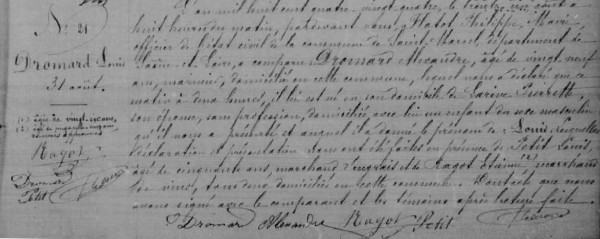 N° 21
Dromard Louis
31 août.
(1) âgée de vingt-six ans,
(2) âgé de
renvois approuvés
Ragot
Dromard
Petit
L'an mil huit cent quatre vingt-quatre, le trente et un août à
huit heures du matin, pardevant nous, Flatot Philippe, Maire
officier de l'état civil de la commune de Saint-Marcel, département de
Saône et Loire, a comparu Dromard Alexandre, âgé de vingt neuf
ans, marinier, domicilié en cette commune, lequel nous a déclaré que ce
matin à deux heures, il lui est né en son domicile de
son épouse, sans profession, domiciliée avec lui un enfant du sexe masculin
qu'il nous a présenté et auquel il a donné le prénom de Louis, lesquelles
déclaration et présentation nous ont été faites en présence de Petit Louis,
âgé de cinquante ans, marchand d'engrais et de Ragot Étienne (2) marchand
de vins, tous deux domiciliés en cette commune. Dont acte que nous
avons signé avec le comparant et les témoins après lecture faite.
Dromard Alexandre Ragot Petit